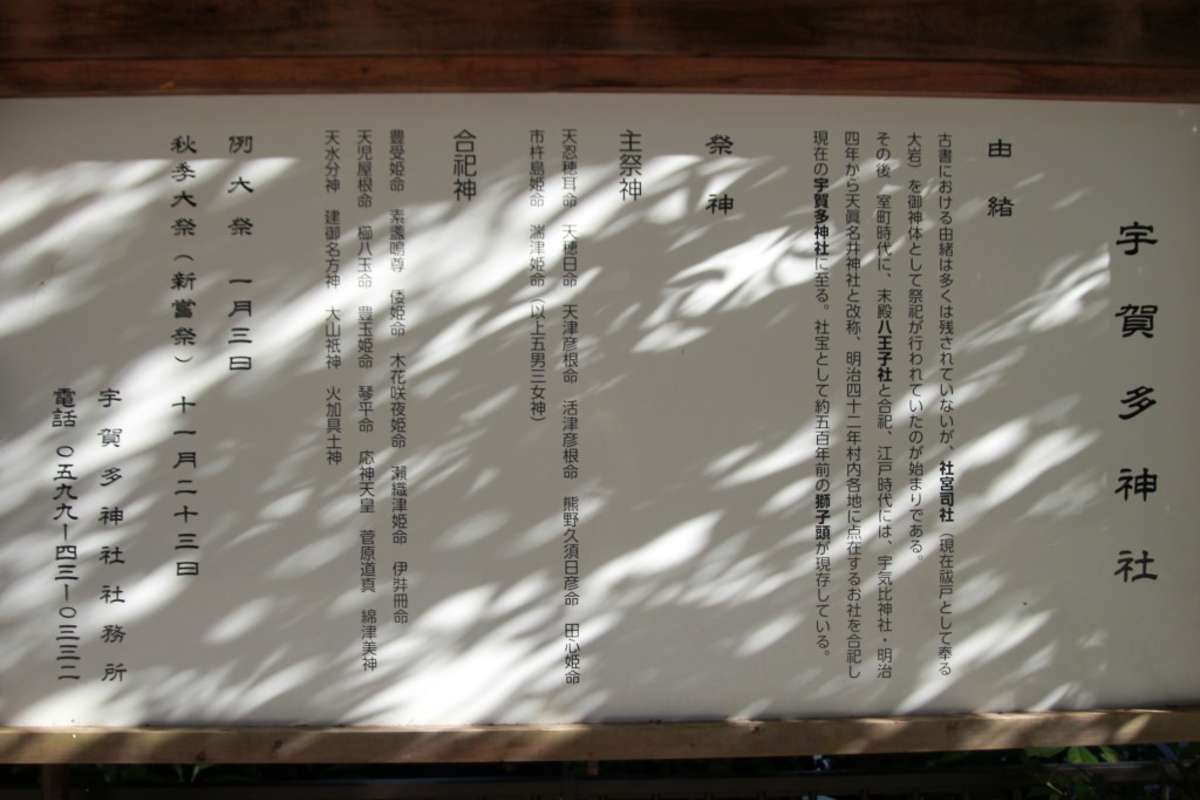 宇賀多神社
由緒
古書における由緒は多くは残されていないが、社宮司社（現在祓戸として奉る
大岩）を御神体として祭祀が行われていたのが始まりである。
その後　室町時代に、末殿八王子社と合祀、江戸時代には、宇気比神社・明治
四年から天眞名井神社と改称、明治四十二年村内各地に点在するお社を合祀し
現在の宇賀多神社に至る。社宝として約五百年前の獅子頭が現存している。
祭神
主祭神
天忍穂耳命　天穂日命　天津彦根命　活津彦根命　熊野久須日彦命　田心姫命
市杵島姫命　湍津姫命（以上五男三女神）
合祀神
豊受姫命　素盞嗚尊　倭姫命　木花咲夜姫命　瀬織津姫命　伊弉冊命
天児屋根命　櫛八玉命　豊玉姫命　琴平命　応神天皇　菅原道真　綿津美神
天水分神　建御名方神　大山祇神　火加具土神
例大祭　一月三日
秋季大祭（新嘗祭）　十一月二十三日
宇賀多神社社務所
電話　〇五九九ー四三ー〇三三二